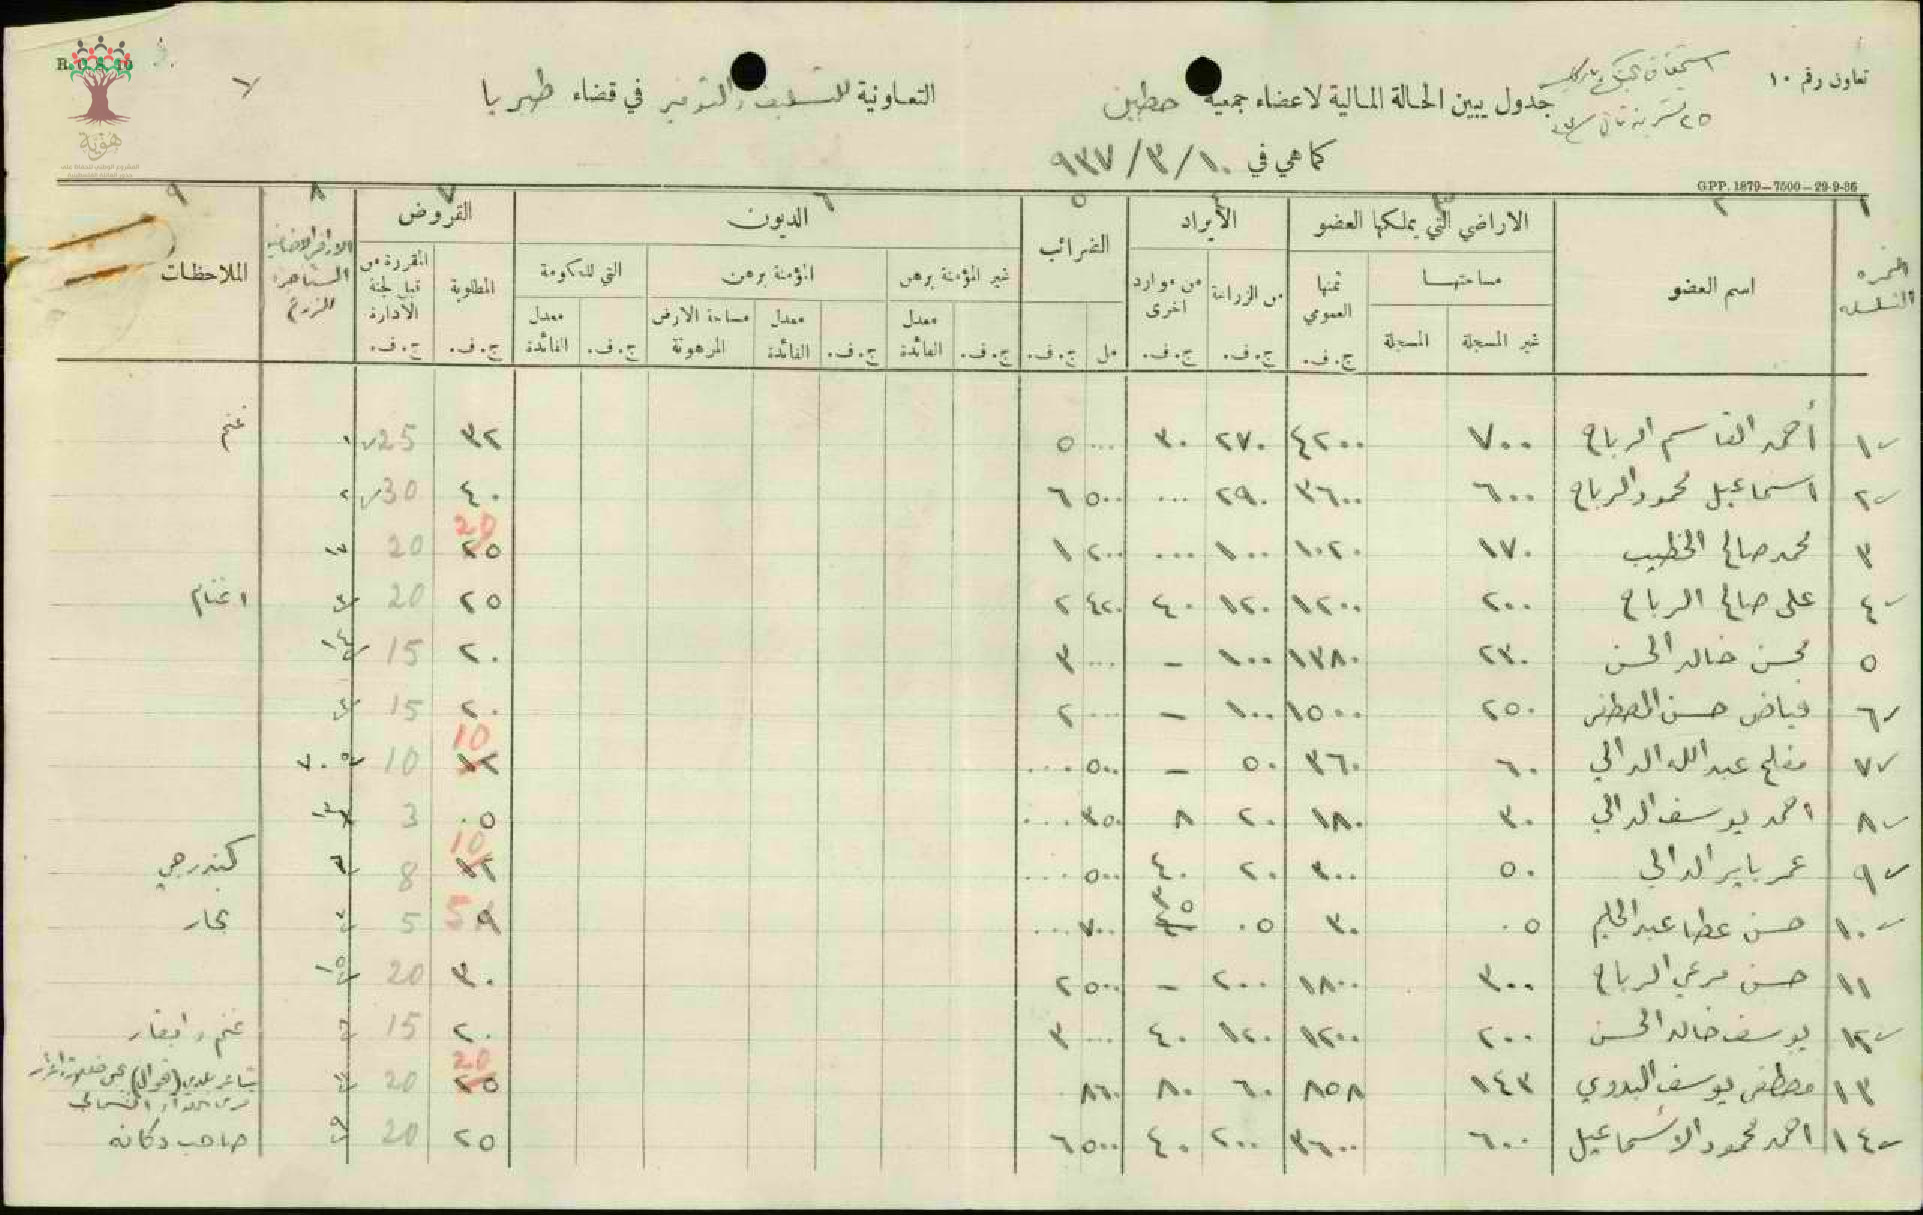 R.C.S. 10
هوية
تعاون رقم ١٠
٧
جدول يبين الحالة المالية لاعضاء جمعية حطين التعاونية للتسليف والتوفير في قضاء طبريا
كما هي في ١٠/٣/٩٣٧
GPP. 1879—7500—29-9-36
١ ٢ ٣ ٤ ٥ ٦ ٧ ٨ ٩
النمره المتسلسله اسم العضو الاراضي التي يملكها العضو الأيراد الضرائب الديون القروض الملاحظات
مساحتها ثمنها العمومي من الزراعة من موارد اخرى غير المؤمنة برهن المؤمنة برهن التي للحكومة المطلوبة المقررة من قبل لجنة الأدارة
غير المسجلة المسجلة ج.ف. ج.ف. ج.ف. مل ج.ف. ج.ف. معدل الفائدة ج.ف. معدل الفائدة مساحة الارض المرهونة ج.ف. معدل الفائدة ج.ف. ج.ف.
١ أحمد القاسم الرباح ٧٠٠ ٤٢٠٠ ٢٧٠ ٣٠ ... ٥ ٣٢ 25 ١ غنم
٢ اسماعيل محمود الرباح ٦٠٠ ٣٦٠٠ ٢٩٠ ... ٥٠٠ ٦ ٤٠ 30 ٢
٣ محمد صالح الخطيب ١٧٠ ١٠٢٠ ١٠٠ ... ٢٠٠ ١ ٢٥ 20 20
٤ علي صالح الرباح ٢٠٠ ١٢٠٠ ١٢٠ ٤٠ ٤٢٠ ٢ ٢٥ 20 اغنام
٥ محسن خالد الحسن ٢٣٠ ١٣٨٠ ١٠٠ – ... ٣ ٢٠ 15
٦ فياض حسن المصطفى ٢٥٠ ١٥٠٠ ١٠٠ – ... ٢ ٢٠ 15
٧ مفلح عبدالله الدالي ٦٠ ٣٦٠ ٥٠ – ٥٠٠ ... ١٢ 10 10
٨ احمد يوسف الدالي ٣٠ ١٨٠ ٢٠ ٨ ٣٥٠ ... ٠٥ 3
٩ عمر باير الدالي ٥٠ ٣٠٠ ٢٠ ٤٠ ٥٠٠ ... ١٢ 10 8 كندرجي
١٠ حسن عطا عبدالحليم ٠٥ ٣٠ ٠٥ ٣٥ ٧٠٠ ... ٩ 5 5 نجار
١١ حسن مرعي الرباح ٣٠٠ ١٨٠٠ ٢٠٠ – ٥٠٠ ٢ ٣٠ 20
١٢ يوسف خالد الحسن ٢٠٠ ١٢٠٠ ١٢٠ ٤٠ ... ٣ ٢٠ 15 غنم وابقار
١٣ مصطفى يوسف البدوي ١٤٣ ٨٥٨ ٦٠ ٨٠ ٨٦٠ ٢٥ 20 20 شاعر بلدي (قوال)
١٤ احمد محمود الاسماعيل ٦٠٠ ٣٦٠٠ ٢٠٠ ٤٠ ٥٠٠ ٦ ٢٥ 20 ٩ صاحب دكانه